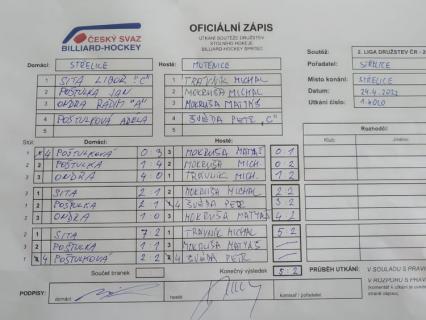 ČESKÝ SVAZ
BILLIARD-HOCKEY
OFICIÁLNÍ ZÁPIS
UTKÁNÍ SOUTĚŽE DRUŽSTEV
STOLNÍHO HOKEJE
BILLIARD-HOCKEY SPRINTEC
Soutěž: 2. LIGA DRUŽSTEV ČR - 2
Domácí: STŘELICE Hosté: MUTĚNICE Pořadatel: STŘELICE
1 SITA LIBOR "C" 1 TRÁVNÍK MICHAL Místo konání: STŘELICE
2 POŠTULKA JAN 2 MOKRUŠA MICHAL Datum: 24.4.2022
3 ONDRA RADIM "A" 3 MOKRUŠA MATYÁŠ Utkání číslo: 1. KOLO
4 POŠTULKOVÁ ADÉLA 4 ŠVÉDA PETR "C"
5 5
Stůl: Domácí: Hosté: Rozhodčí:
Klub: Jméno:
1 4 POŠTULKOVÁ 0:3 3 MOKRUŠA MATYÁŠ 0:1
2 2 POŠTULKA 1:4 2 MOKRUŠA MICH. 0:2
3 ONDRA 4:0 1 TRÁVNÍK MICH. 1:2
3 1 SITA 2:1 2 MOKRUŠA MICHAL 2:2
1 2 POŠTULKA 2:1 4 ŠVÉDA PETR 3:2
2 3 ONDRA 1:0 3 MOKRUŠA MATYÁŠ 4:2
2 1 SITA 7:2 1 TRÁVNÍK MICHAL 5:2
3 2 POŠTULKA 1:1 3 MOKRUŠA MATYÁŠ
1 4 POŠTULKOVÁ 2:2 4 ŠVÉDA PETR
Součet branek : Konečný výsledek 5:2 PRŮBĚH UTKÁNÍ: V SOULADU S PRAV
V ROZPORU S PRAV
PODPISY: domácí hosté komisař / pořadatel